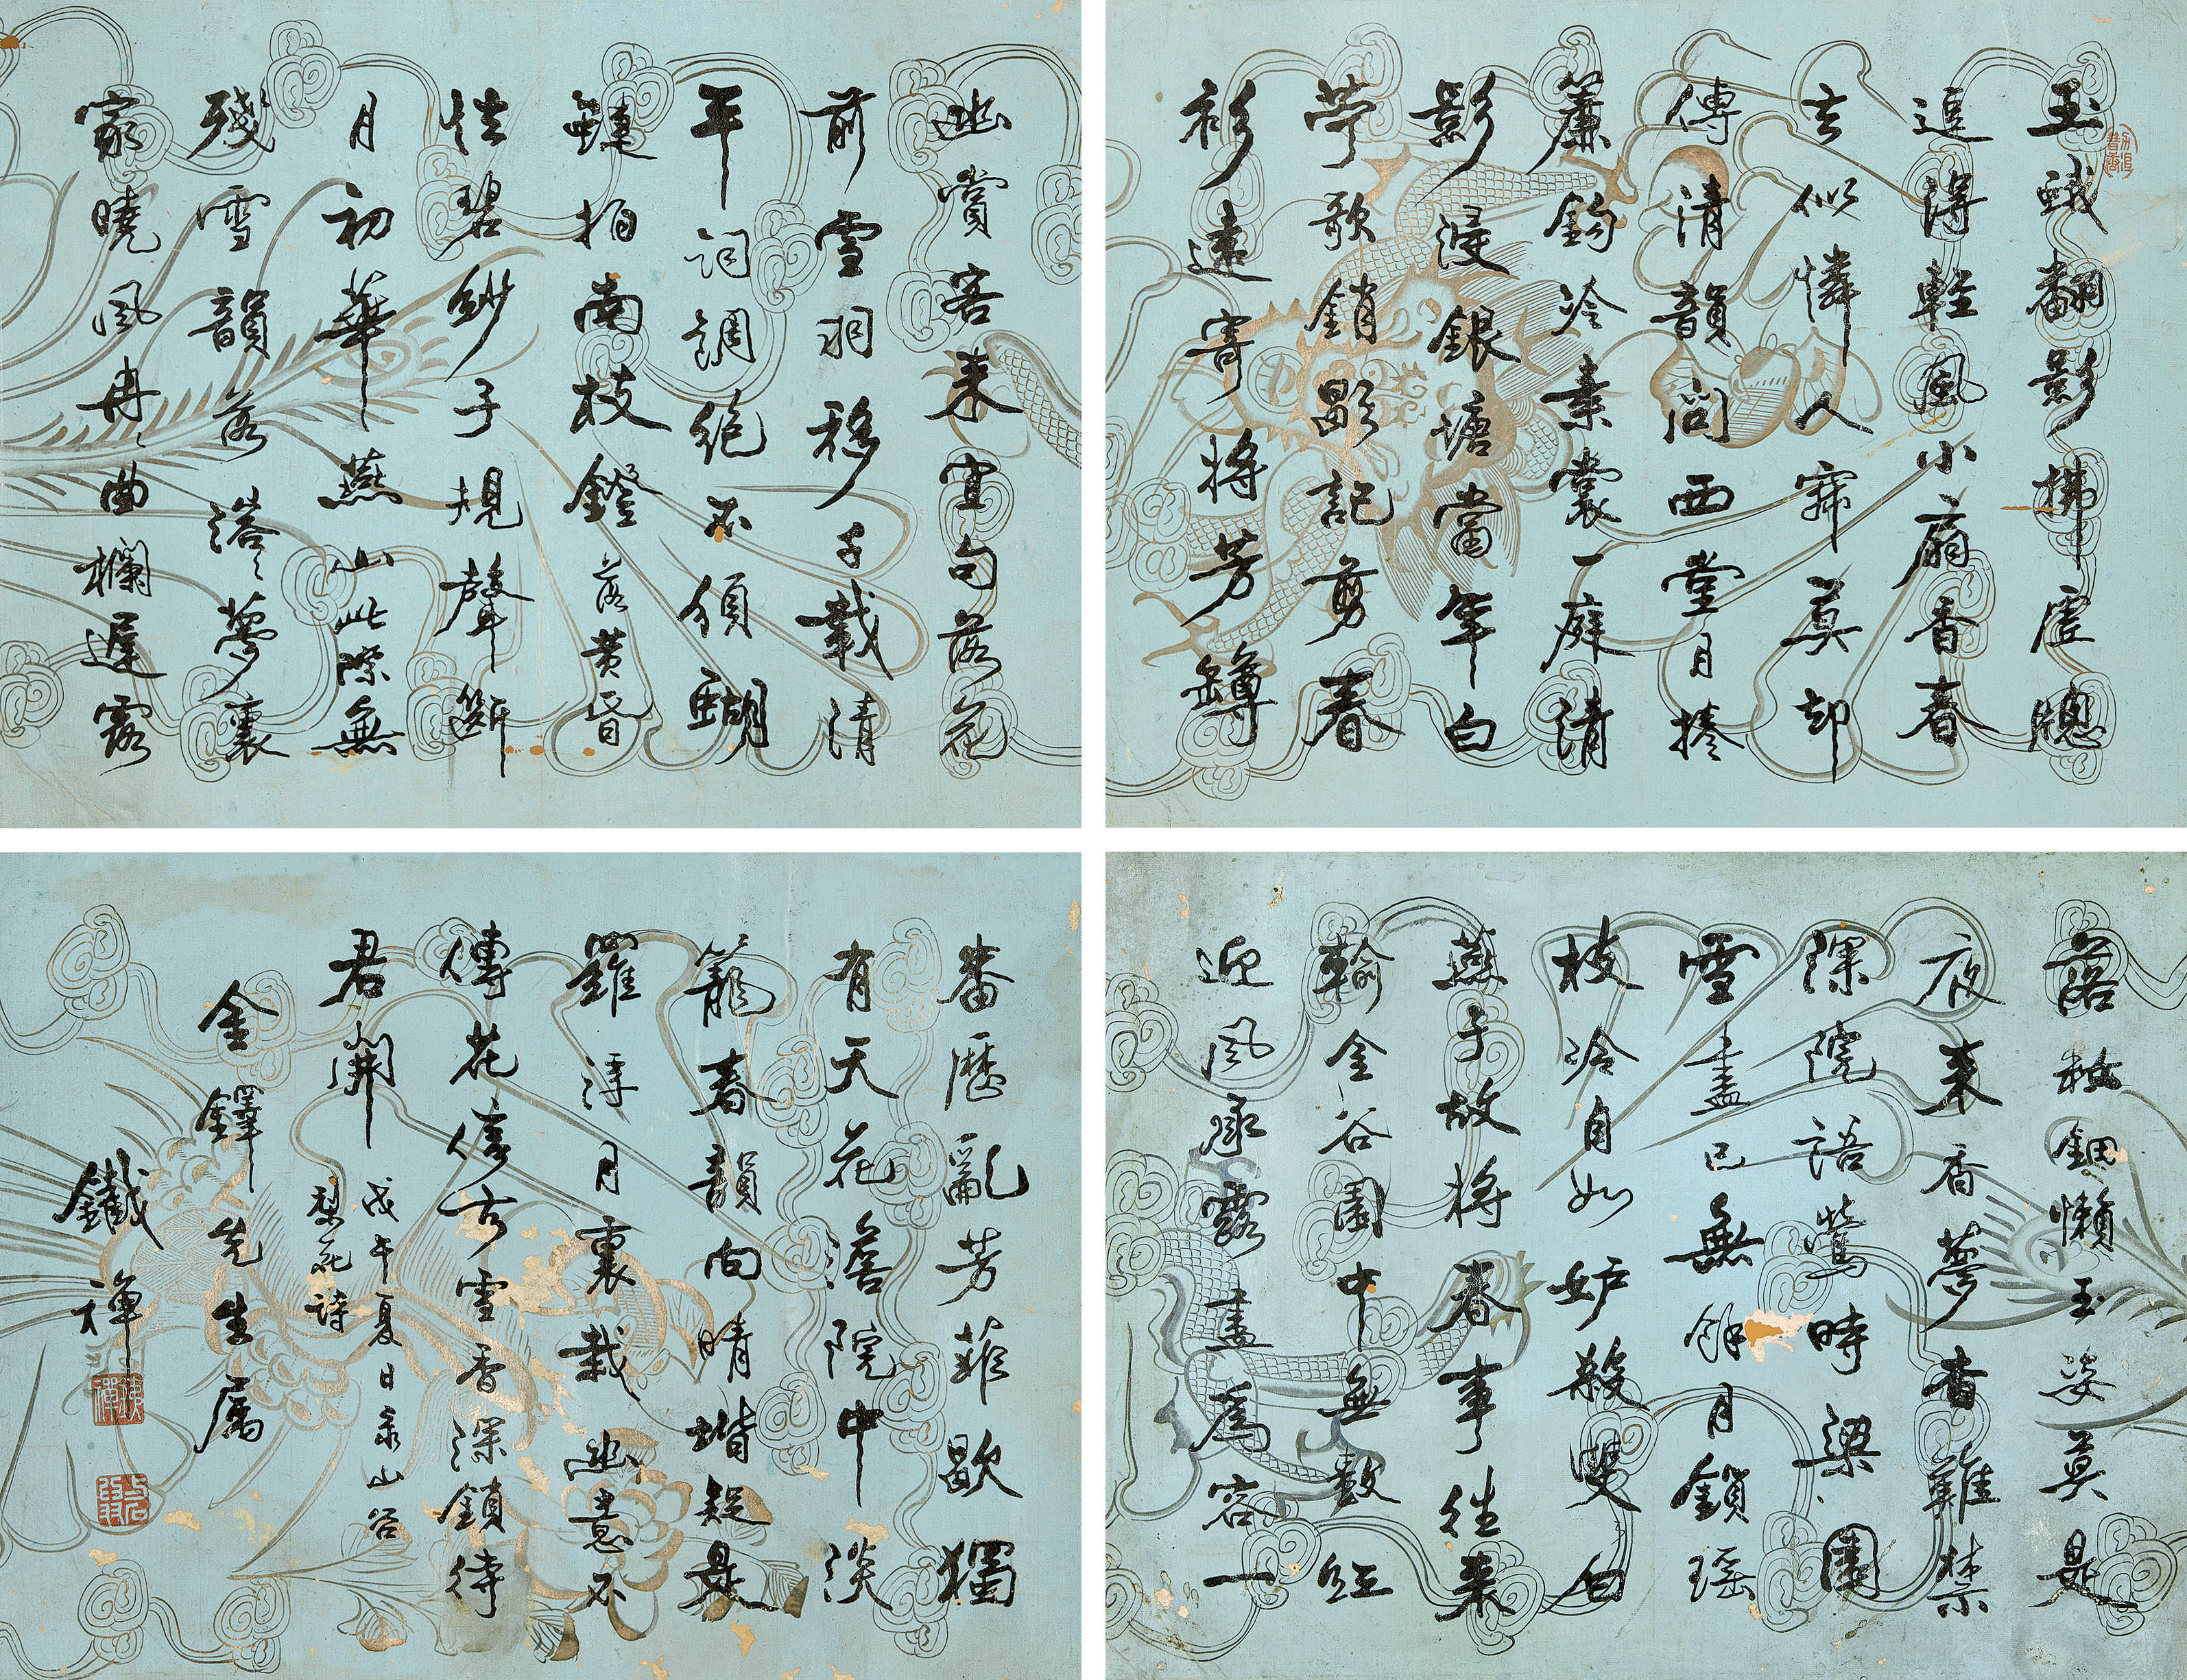 玉蛾翻影拂虛牕
追得輕風小扇香春
去似憐人寂莫却
傳清韻問西堂月捲
簾鈎冷素裳一庭清
影浸銀塘當年白
苧歌銷歇記剪春
衫遠寄將芳罇
幽賞客來宜句落花
前雪羽移千載清
平詞調絕不須蝴
蝶拍南枝鐙落黃昏
怯碧紗子規聲斷
月初華燕山此際無
殘雪韻落澹〻夢裏
家曉風冉〻曲欄遲露
落粧鈿懶玉姿莫是
夜來香夢杳難禁
深院語鶯時梁園
雪盡已無餘月鎖瑶
枝冷自如妒殺雙白
燕子故將春事往來
輸金谷園中無數紅
迎風承露盡為容一
番歷亂芳菲歇獨
有天花澹院中淡
籠春韻向晴堦疑是
羅浮月裏栽幽意不
傳花信去雪香深鎖待
君開
戊午夏日录山谷
梨花詩
金鐸先生屬
鐵禪
鐵禪